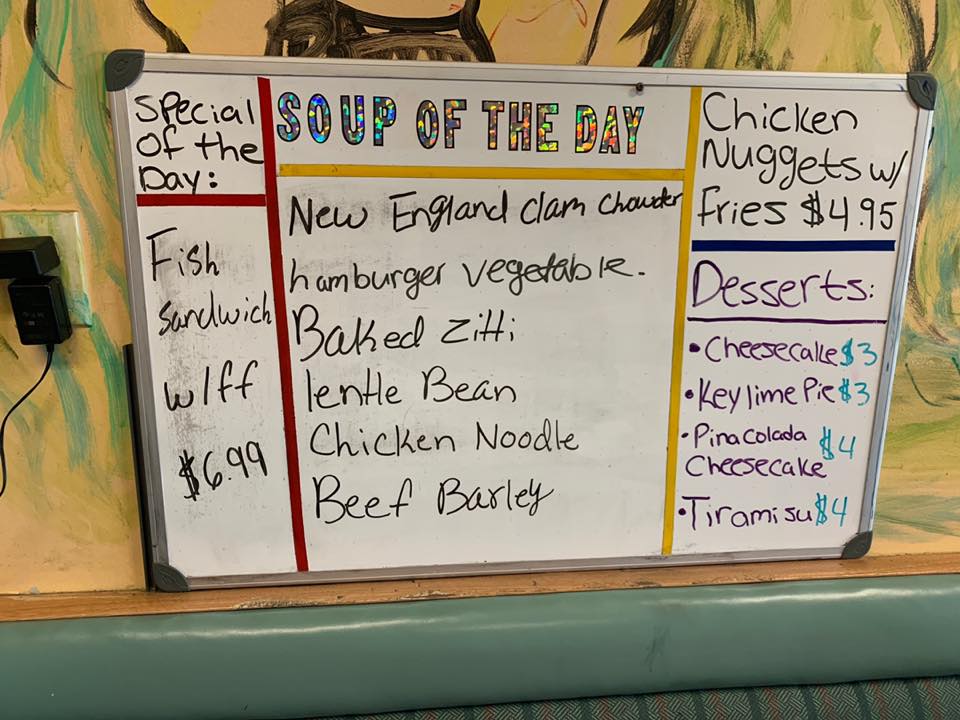 Special
Of the
Day:
Fish
sandwich
w/ff
$6.99
SOUP OF THE DAY
New England clam chowder
hamburger vegetable.
Baked Zitti
lentle Bean
Chicken Noodle
Beef Barley
Chicken
Nuggets w/
fries $4.95
Desserts:
• Cheesecake $3
• Key lime Pie $3
• Pina Colada $4
Cheesecake
• Tiramisu $4